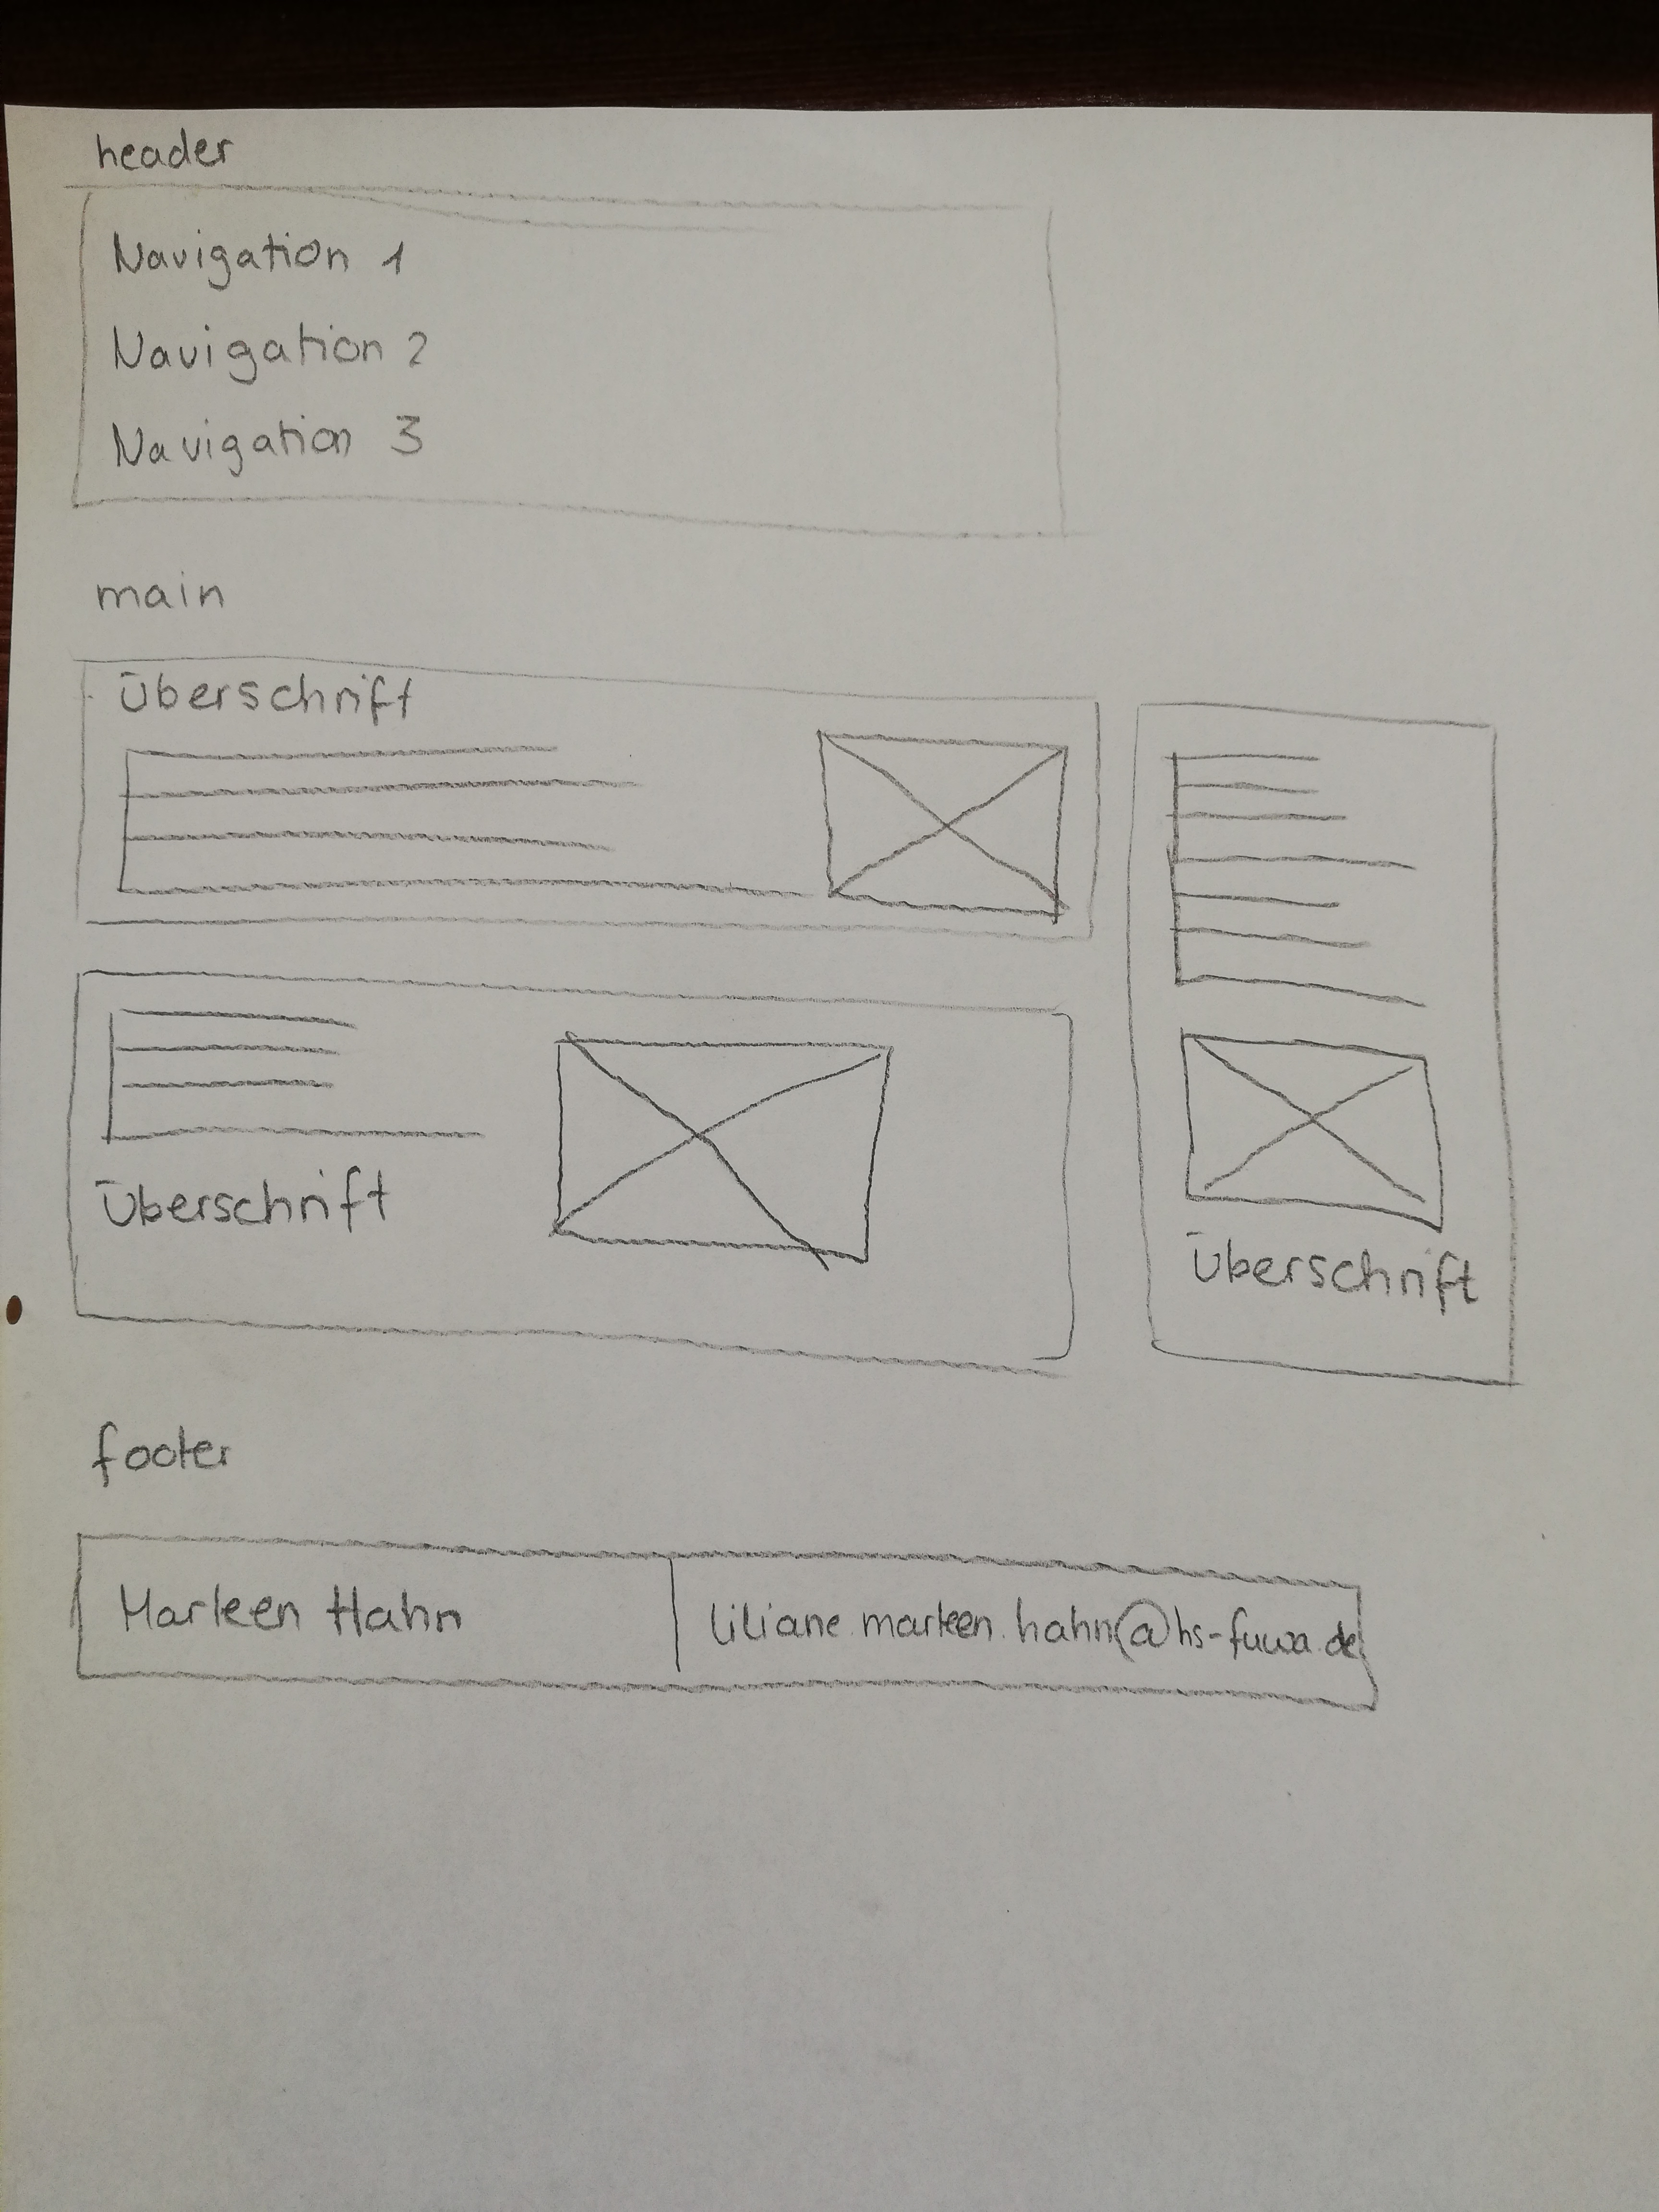 header
Navigation 1
Navigation 2
Navigation 3
main
Überschrift
Überschrift
Überschrift
footer
Marleen Hahn
liliane.marleen.hahn@hs-fuwa.de